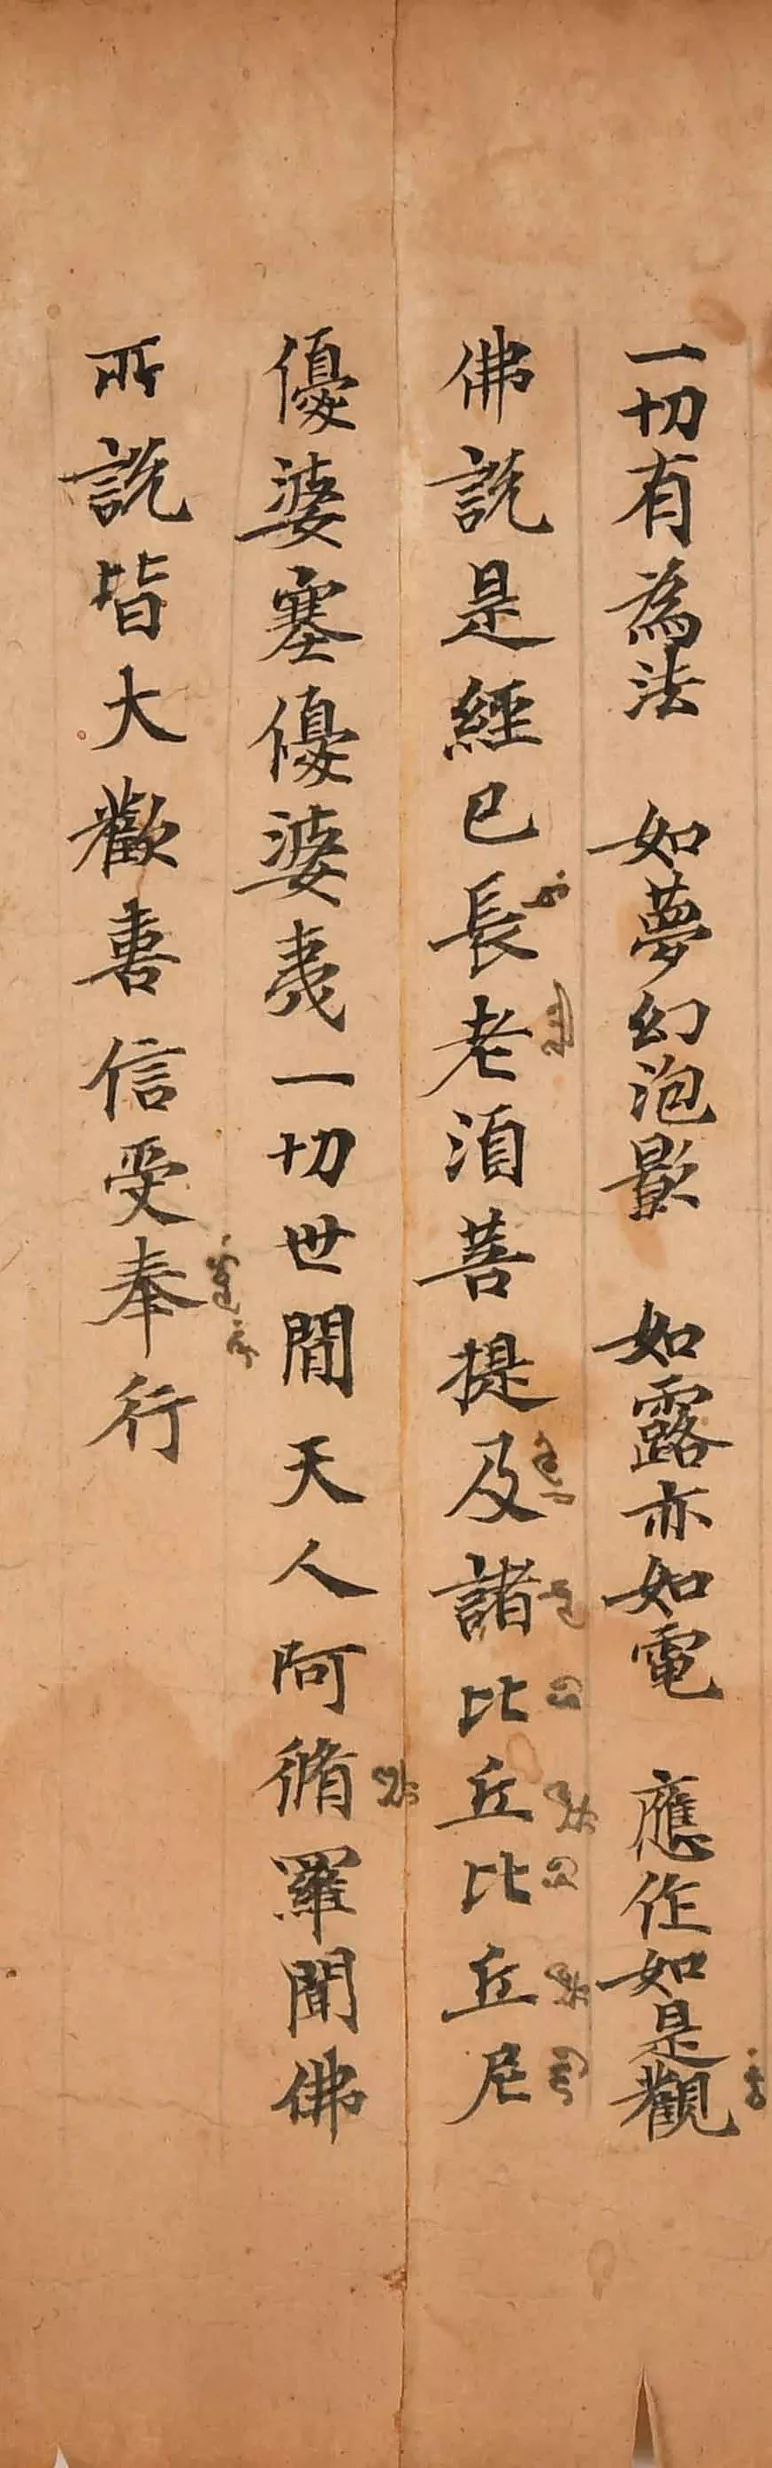 一切有為法　如夢幻泡影　如露亦如電　應作如是觀
佛說是經已長老須菩提及諸比丘比丘尼
優婆塞優婆夷一切世間天人阿脩羅聞佛
所說皆大歡喜信受奉行